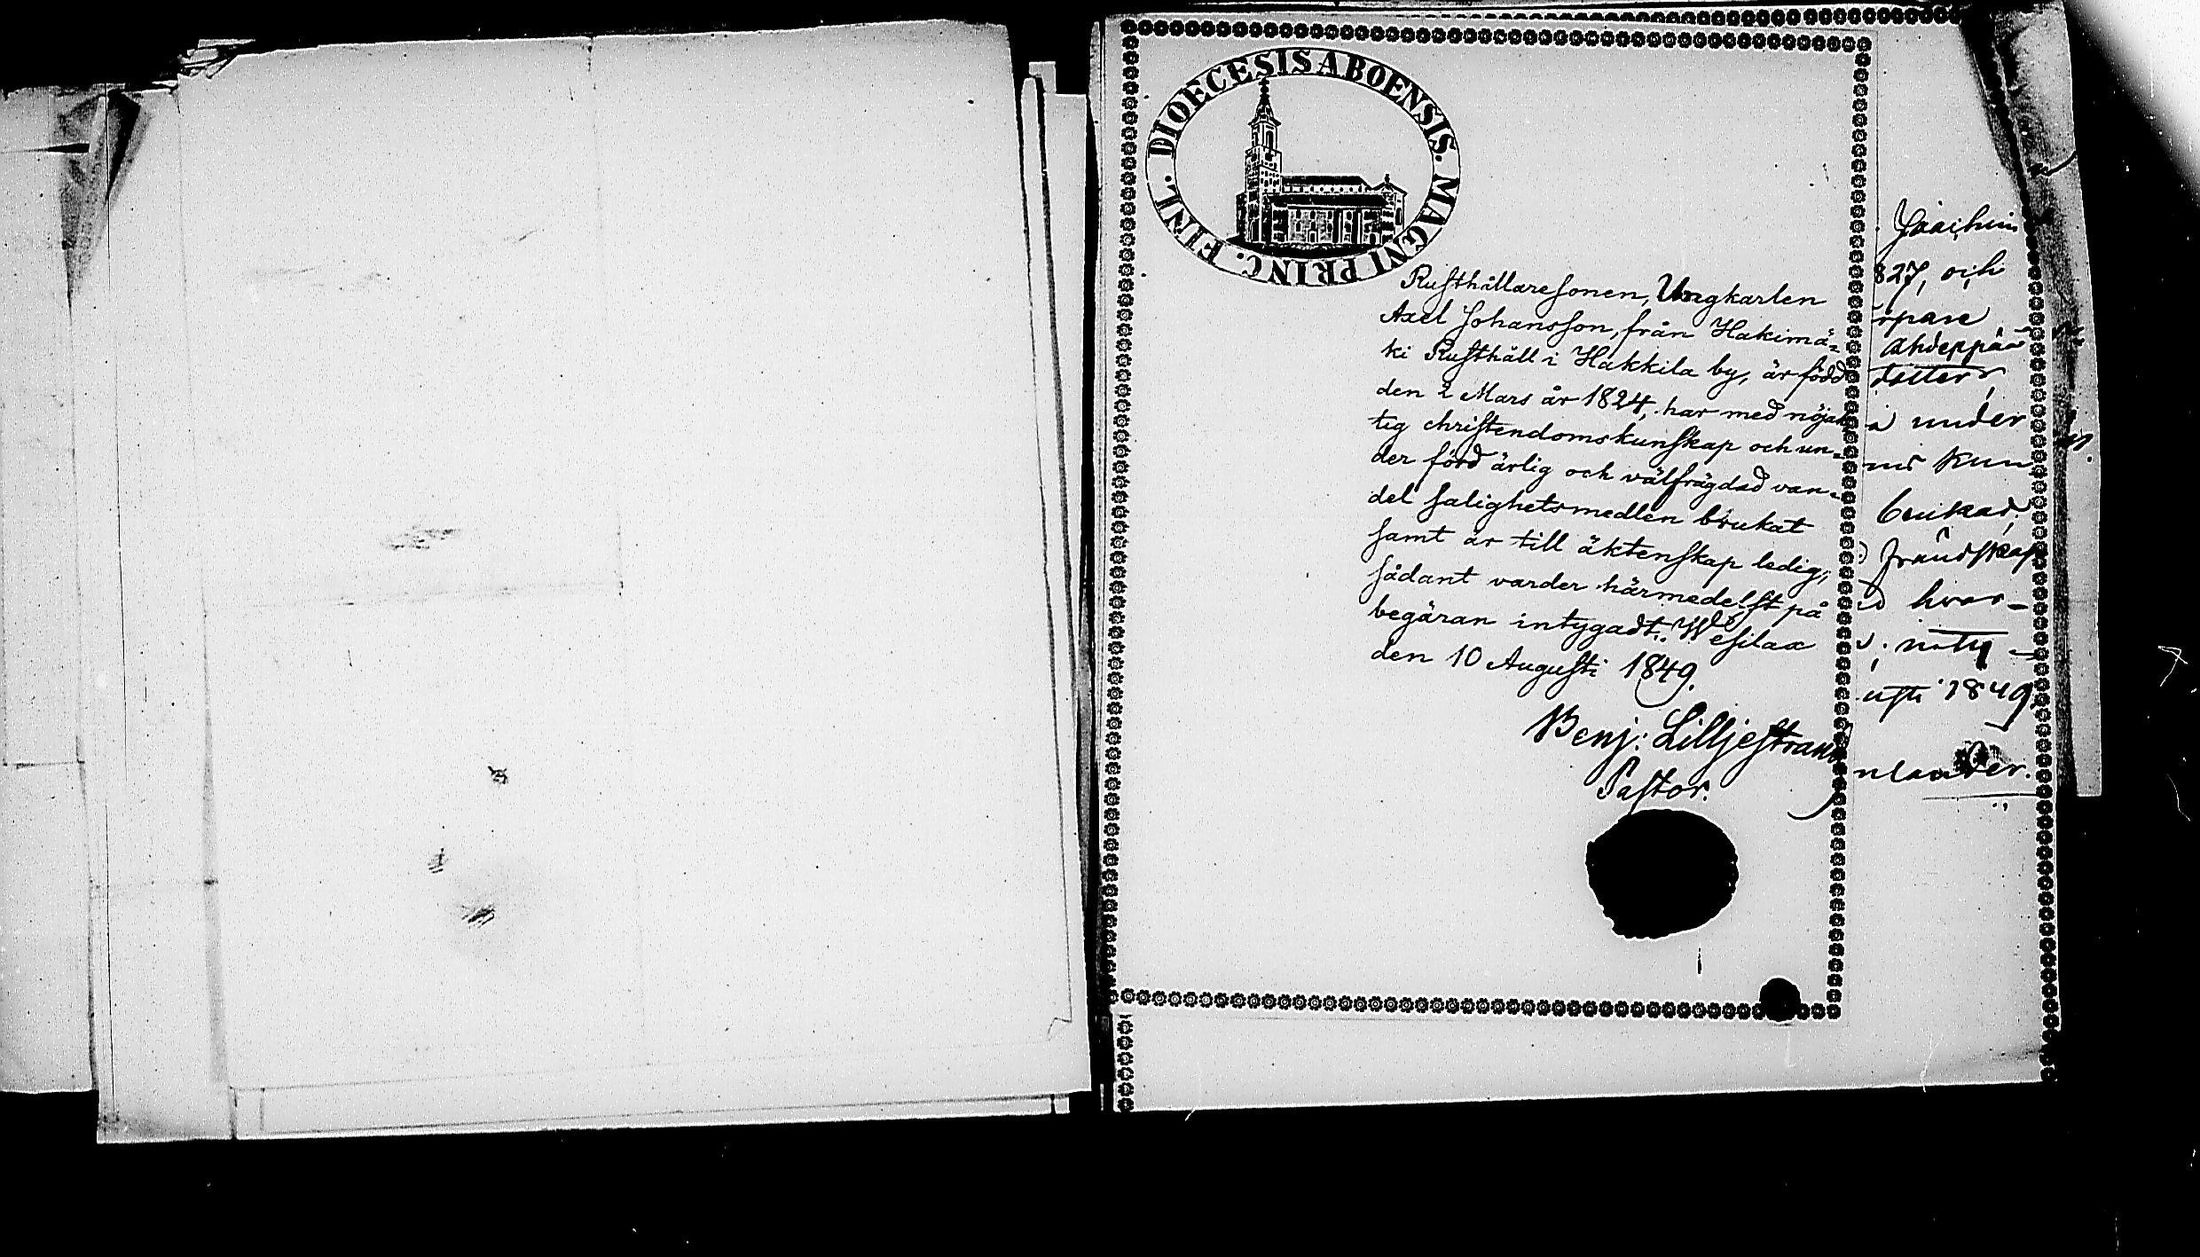 DIOECESIS ABOENSIS. MAGNI PRINC. FINL.
Rusthållaresonen, Ungkarlen
Axel Johansson, från Hakimä-
ki Rusthåll i Hakkila by, är född
den 2 Mars år 1824, har med nöjak
tig christendomskunskap och un-
der förd ärlig och välfrägdad van-
del salighetsmedlen brukat
samt är till äktenskap ledig;
sådant varder härmedelst på
begäran intygadt. Wesilax
den 10 Augusti 1849.
Benj: Lilljestrand
Pastor.
Joachim
827, och
rpare
dotter
under
kun
brukad
frändskap
hvar-
inty-
usti 1849
nlander.